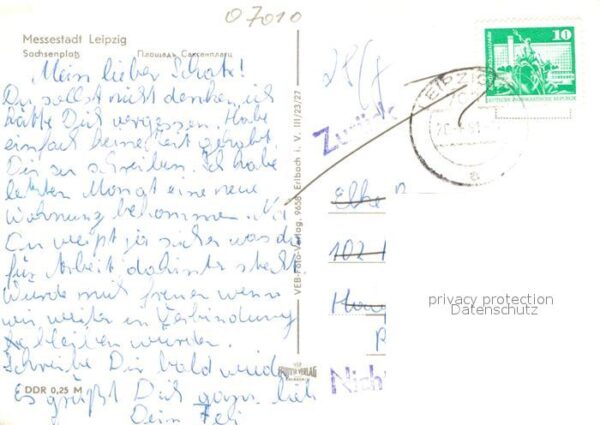 07010
Messestadt Leipzig
Sachsenplatz Площадь Саксенплатц
Mein lieber Schatz!
Du sollst nicht denken ich
hätte Dich vergessen. Habe
einfach keine Zeit gehabt
Dir zu schreiben. Ich habe
letzten Monat eine neue
Wohnung bekommen
Du weißt ja sicher was da
für Arbeit dahinter steckt.
Würde mich freuen wenn
wir weiter in Verbindung
bleiben würden.
Schreibe Dir bald wieder
Es grüßt Dich ganz lieb
Dein
DDR 0,25 M
VEB-Foto-Verlag, 9655 Erlbach i. V. III/23/27
Zurück
LEIPZIG
10
DEUTSCHE DEMOKRATISCHE REPUBLIK
Elke
102
privacy protection
Datenschutz
Nich